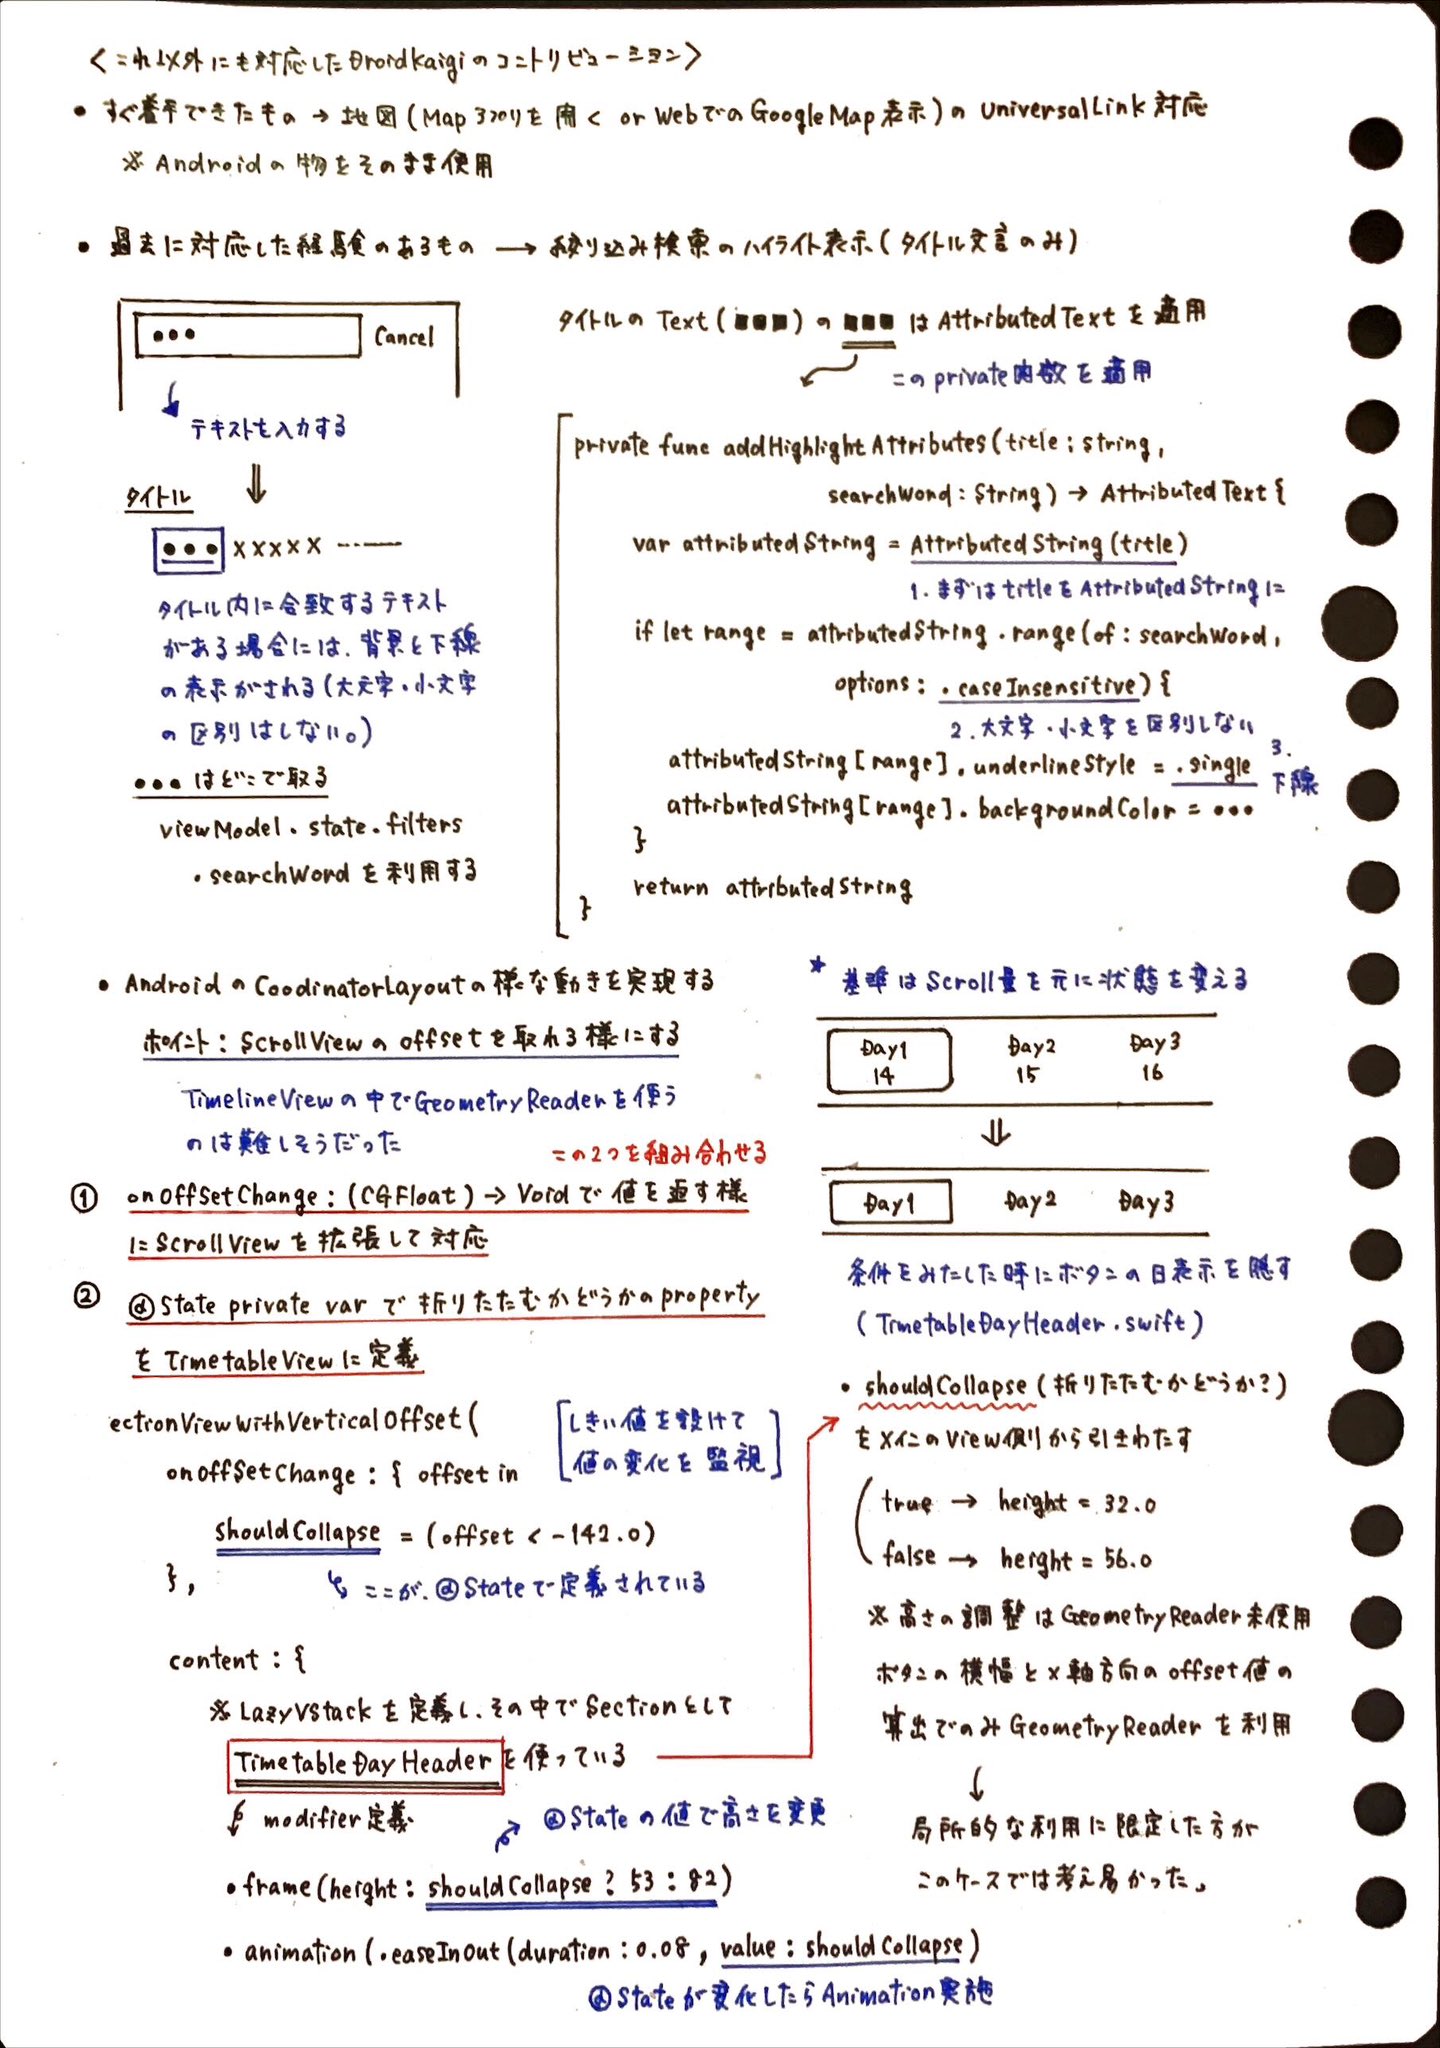 <これ以外にも対応したDroidKaigiのコントリビューション>
• すぐ着手できたもの → 地図(Mapアプリを開く or WebでのGoogleMap表示)の UniversalLink 対応
※ Androidの物をそのまま使用
• 過去に対応した経験のあるもの → 絞り込み検索のハイライト表示(タイトル文言のみ)
••• Cancel
テキストを入力する
⇓
タイトル
••• xxxxx ---
タイトル内に合致するテキスト
がある場合には、背景と下線
の表示がされる(大文字・小文字
の区別はしない。)
••• はどこで取る
viewModel.state.filters
.searchWord を利用する
タイトルの Text(■■■) の ■■■ は AttributedText を適用
この private関数 を適用
private func addHighlightAttributes(title: String,
searchWord: String) → AttributedText {
var attributedString = AttributedString(title)
1. まずは titleを AttributedStringに
if let range = attributedString.range(of: searchWord,
options: .caseInsensitive) {
2. 大文字・小文字を区別しない
attributedString[range].underlineStyle = .single
3. 下線
attributedString[range].backgroundColor = •••
}
return attributedString
}
• AndroidのCoodinatorLayoutの様な動きを実現する
ポイント: ScrollViewの offsetを取れる様にする
TimelineViewの中でGeometryReaderを使う
のは難しそうだった
この2つを組み合わせる
① onOffsetChange: (CGFloat) → Voidで値を返す様
にScrollViewを拡張して対応
② @State private var で折りたたむかどうかのproperty
を TimetableViewに定義
ectionViewWithVerticalOffset(
onOffsetChange: { offset in
[しきい値を設けて
値の変化を監視]
shouldCollapse = (offset < -142.0)
},
ここが、@Stateで定義されている
content: {
※ LazyVStackを定義し、その中でSectionとして
TimetableDayHeader を使っている
modifier定義
@Stateの値で高さを変更
• frame(height: shouldCollapse ? 53 : 82)
• animation(.easeInOut(duration: 0.08, value: shouldCollapse)
@Stateが変化したらAnimation実施
* 基準はScroll量を元に状態を変える
Day1 Day2 Day3
14 15 16
⇓
Day1 Day2 Day3
条件をみたした時にボタンの日表示を隠す
(TimetableDayHeader.swift)
• shouldCollapse (折りたたむかどうか?)
をメインのView側から引きわたす
true → height = 32.0
false → height = 56.0
※ 高さの調整はGeometryReader未使用
ボタンの横幅とx軸方向のoffset値の
算出でのみGeometryReaderを利用
↓
局所的な利用に限定した方が
このケースでは考え易かった。